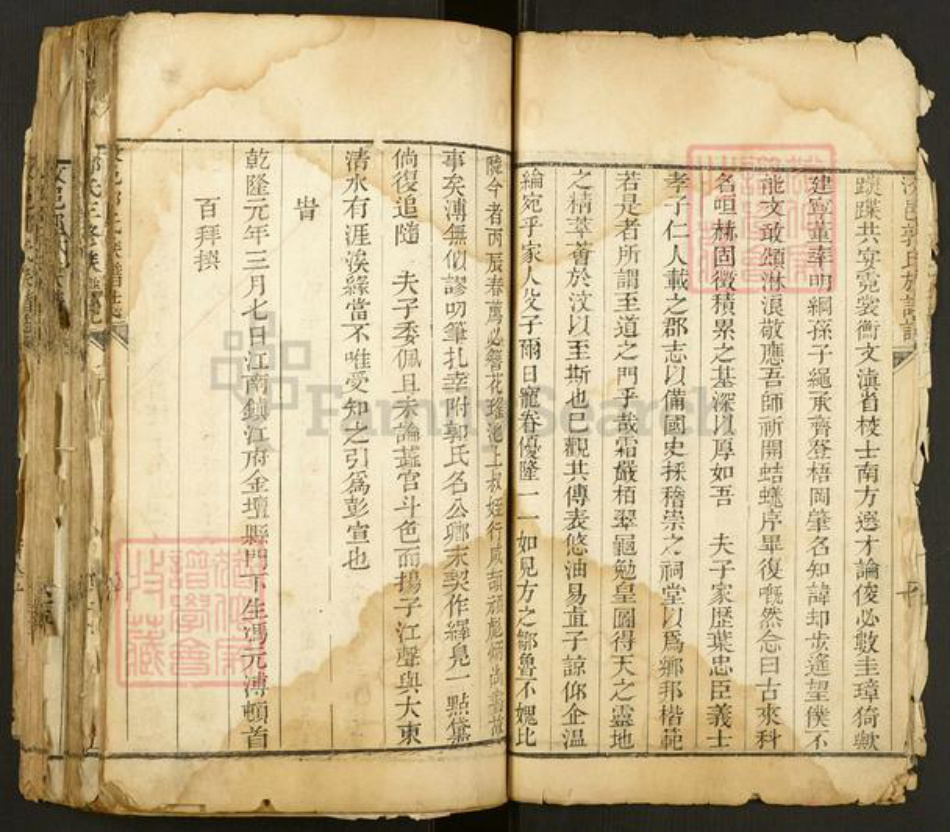 汶邑郭氏族譜
蹀共宴霓裳衡文滇省校士南方選才論俊必數圭璋猗歟
建寧董率明綱孫子繩承齊登梧岡肇名知諱却步遙望僕不
能文敢頌淋浪敬應吾師祈開蛣蟯序畢復慨然念曰古來科
名咺赫固徵積累之基深以厚如吾 夫子家歷葉忠臣義士
孝子仁人載之郡志以備國史採稽崇之祠堂以爲鄉邦楷範
若是者所謂至道之門乎哉霜嚴栢翠龜勉皇圖得天之靈地
之精萃薈於汶以至斯也已觀其傳表悠油易直子諒仰企温
綸宛乎家人父子爾日寵眷優隆一一如見方之鄒魯不媿比
陵今者丙辰春薦必簪花瑤池上叔姪行成頡頏彪炳尚書故
事矣溥無似謬叨筆扎幸附郭氏名公鄉末契作繹見一點黛
倘復追隨 夫子委佩且未論蓝官斗色而揚子江聲與大東
清水有涯涘緣當不唯受知之引爲彭宣也
旹
乾隆元年三月七日江南鎮江府金壇縣門下生馮元溥頓首
百拜撰
郭氏三修族譜
FamilySearch
譜學會
收藏